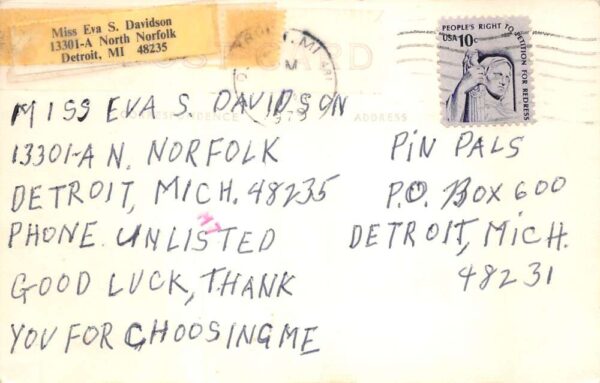 Miss Eva S. Davidson
13301-A North Norfolk
Detroit, MI 48235
PEOPLE'S RIGHT TO PETITION FOR REDRESS
USA 10c
POST CARD
CORRESPONDENCE
ADDRESS
MISS EVA S. DAVIDSON
13301-A N. NORFOLK
DETROIT, MICH. 48235
PHONE UNLISTED
GOOD LUCK, THANK
YOU FOR CHOOSING ME
PIN PALS
P.O. BOX 600
DETROIT, MICH.
48231